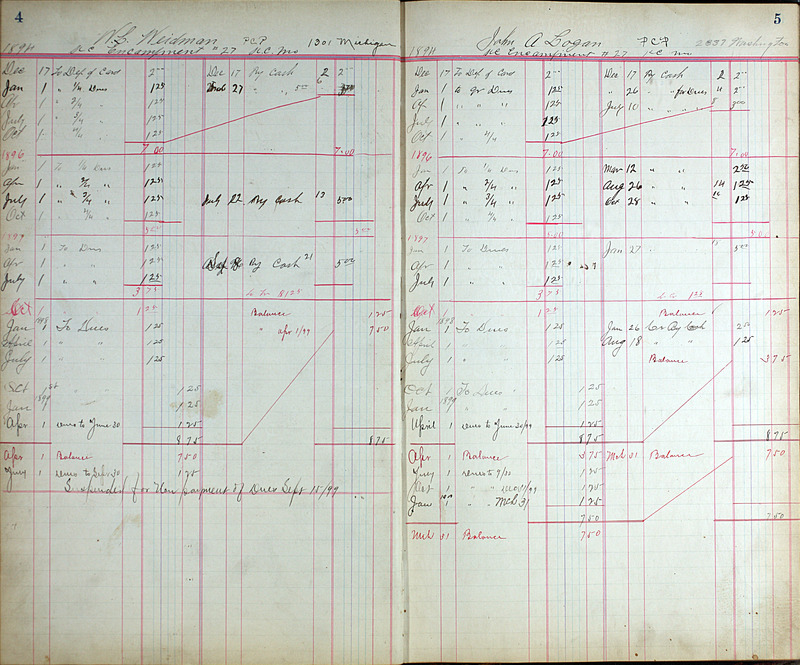 4
W. S. Weidman PCP 1301 Michigan
1894 KC Encampment #27 K.C. Mo
Dec 17 To Def of Card 2 00 Dec 17 By Cash 2 2 00
Jan 1 " 1/4 Dues 1 25 27 " " 5 00
Apr 1 " 2/4 " 1 25
July 1 " 3/4 " 1 25
Oct 1 4/4 " 1 25
7.00 7.00
1896
Jan 1 To 1/4 Dues 1 25
Apr 1 " 2/4 " 1 25
July 1 " 3/4 " 1 25 July 22 By Cash 13 5 00
Oct 1 " 4/4 " 1 25
5 00 5 00
1897
Jan 1 To Dues 1 25
Apr 1 " " 1 25 By Cash 21 5 00
July 1 " " 1 25
3 75
Oct 1 1 25 Balance 1 25
Jan 1898 1 To Dues 1 25 " Apr 1/99 7 50
April 1 " " 1 25
July 1 " " 1 25
Oct 1st " " 1 25
Jan 1899 1 25
Apr 1 Dues to June 30 1 25
8 75 8 75
Apr 1 Balance 7 50
July 1 Dues to Sept 30 1 25
Suspended for Non payment of Dues Sept 15/99
5
John A Logan PCP 2337 Washington
1894 KC Encampment #27 K.C. Mo
Dec 17 To Def of Card 2 00 Dec 17 By Cash 2 2 00
Jan 1 to Qr Dues 1 25 " 26 " for Dues 4 2 00
Ap 1 " " " 1 25 July 10 " " 8 3 00
July 1 " " " 1 25
Oct 1 " 4/4 1 25
7.00 7.00
1896
Jan 1 To 1/4 Dues 1 25 Mar 12 " "
Apr 1 " 2/4 " 1 25 Aug 26 " " 14 1 25
July 1 " 3/4 " 1 25 Oct 28 " " 1 25
Oct 1 " 4/4 " 1 25
5.00 5.00
1897
Jan 1 To Dues 1 25 Jan 27 5 00
Apr 1 " " 1 25
July 1 " " 1 25
3 75
Oct 1 1 25 Balance 1 25
Jan 1898 1 To Dues 1 25 Jan 26 Cr By Cash 2 50
April 1 " " 1 25 Aug 18 " " 1 25
July 1 " " 1 25 Balance 3 75
Oct 1 To Dues " 1 25
Jan 1899 " " 1 25
April 1 Dues to June 30/99 1 25
8 75 8 75
Apr 1 Balance 3 75 Mch 31 Balance 7 50
July 1 Dues to 9/30 1 25
Oct 1 " " 1 25
Jan 1 " " Mch 31 1 25
7 50 7 50
Mch 31 Balance 7 50